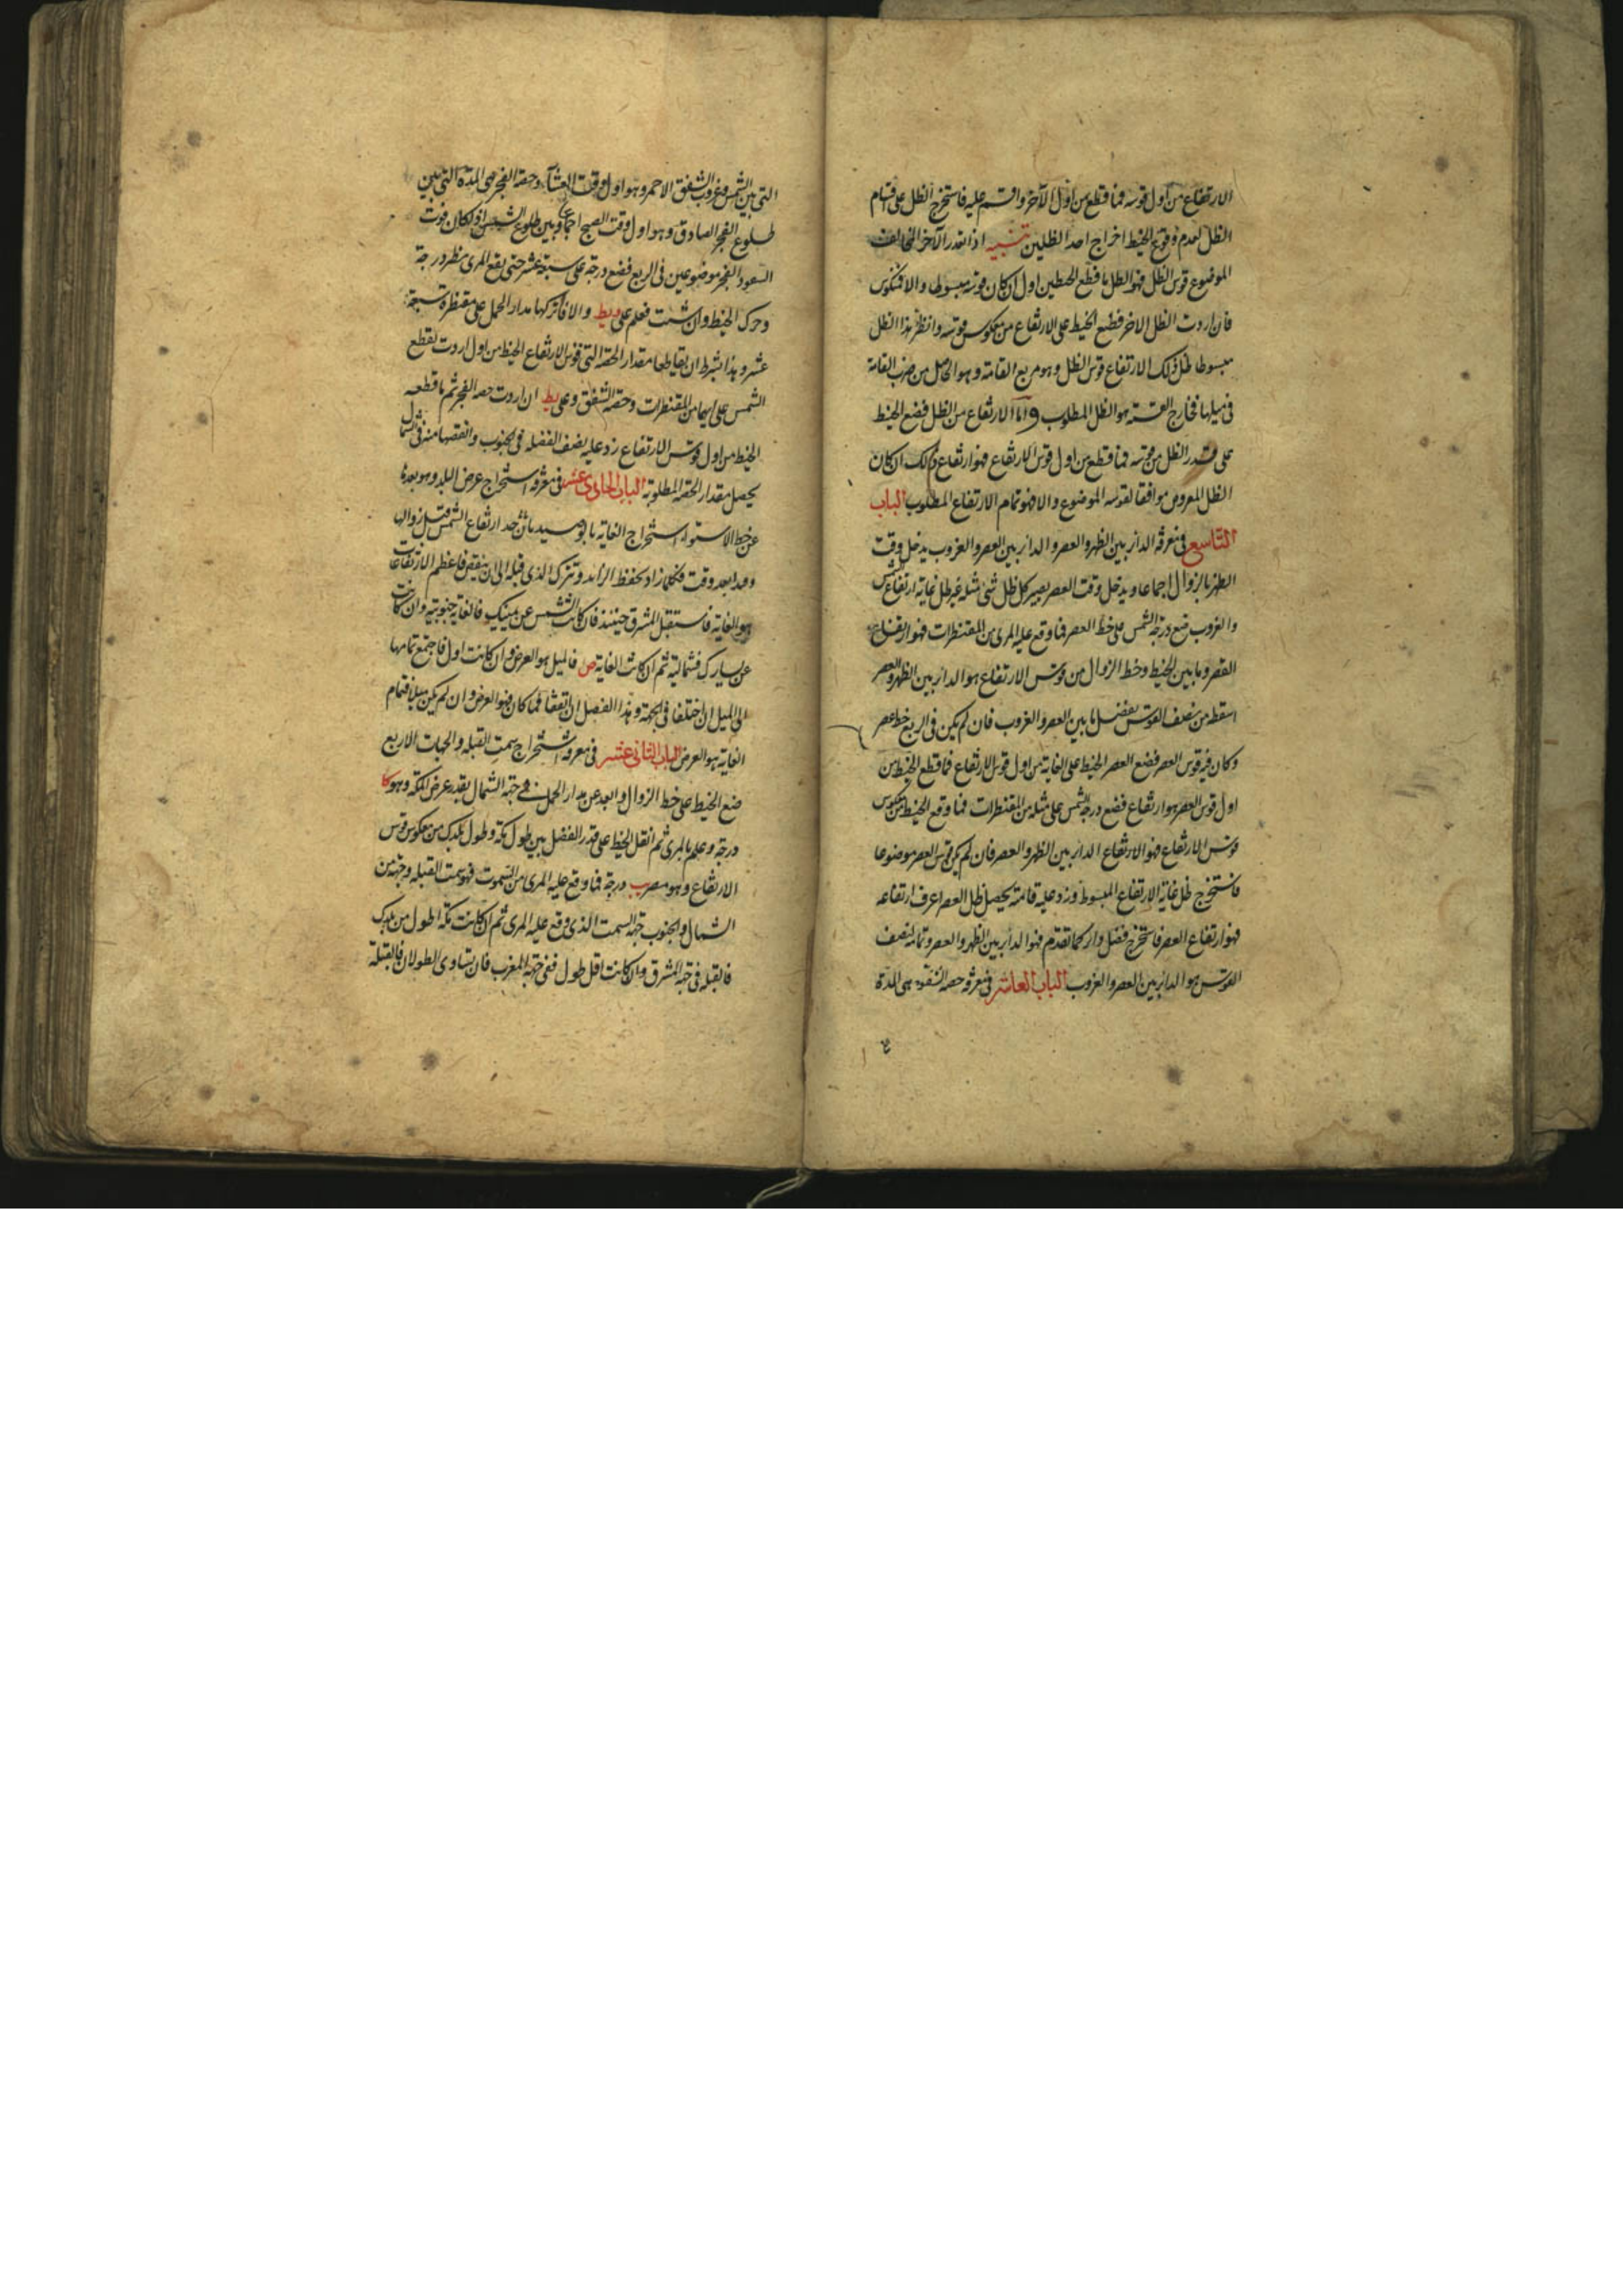 الارتفاع من اول قوسه فما قطع من اول الآخر واقسم عليه فاستخرج الظل على اقسام
الظل لعدم وقوع الخيط اخراج احد الظلين تنبيه اذا تعذر الآخر
الموضوع قوس الظل فهو الظل ما قطع الخيط من اول ان كان قوسه مبسوطا والا فنكوس
فان اردت الظل الاخر فضع الخيط على الارتفاع من معكوس قوسه وانظر هذا الظل
مبسوطا ظل ذلك الارتفاع قوس الظل وهو مربع القامة وهو الحاصل من ضرب القامة
في مثلها فخارج القسمة هو الظل المطلوب واما الارتفاع من الظل فضع الخيط
على قدر الظل من قوسه فما قطع من اول قوس الارتفاع فهو ارتفاع ذلك ان كان
الظل المعروض موافقا لقوسه الموضوع والا فهو تمام الارتفاع المطلوب الباب
التاسع في معرفة الدائر بين الظهر والعصر والدائر بين العصر والغروب يدخل وقت
الظهر بالزوال اجماعا ويدخل وقت العصر بمصير كل ظل شئ مثله غير ظل غاية ارتفاع الشمس
والغروب ضع درجة الشمس على خط العصر فما وقع عليه المرى من المقنطرات فهو ارتفاع
العصر وما بين الخيط وخط الزوال من قوس الارتفاع هو الدائر بين الظهر والعصر
اسقطه من نصف القوس يفضل ما بين العصر والغروب فان لم يكن في الربع خط عصر
وكان فيه قوس العصر فضع العصر الخيط على الغاية من اول قوس الارتفاع فما قطع الخيط من
اول قوس العصر هو ارتفاع فضع درجة الشمس على مثله من المقنطرات فما وقع الخيط من معكوس
قوس الارتفاع فهو الارتفاع الدائر بين الظهر والعصر فان لم يكن قوس العصر موضوعا
فاستخرج ظل غاية الارتفاع المبسوط وزد عليه قامة يحصل ظل العصر اعرف ارتفاعه
فهو ارتفاع العصر فاستخرج فضل دائر كما تقدم فهو الدائر بين الظهر والعصر وتمامه لنصف
القوس هو الدائر بين العصر والغروب الباب العاشر في معرفة حصة الشفق وهي المدة
التي بين الشمس وغروب الشفق الاحمر وهو اول وقت العشاء وحصة الفجر هي المدة التي بين
طلوع الفجر الصادق وهو اول وقت الصبح اجماعا وبين طلوع الشمس
الفجر موضوعين في الربع فضع درجة على سبعة عشر حتى يقع المرى نظير درجة
وحرك الخيط وان شئت فعلم على والا فاتركها مدار الحمل على مقنطرة سبعة
عشر وهذا بشرط ان تقاطعها مقدار الحصة التي قوس الارتفاع الخيط من اول اردت يقطع
الشمس على ايهما من المقنطرات وحصة الشفق وعلى يط ان اردت حصة الفجر ثم ما قطعه
الخيط من اول قوس الارتفاع زد عليه نصف الفضلة في الجنوب وانقصها منه في الشمال
يحصل مقدار الحصة المطلوبة الباب الحادى عشر في معرفة استخراج عرض البلد وهو بعده
عن خط الاستواء استخراج الغاية بان تأخذ ارتفاع الشمس قبيل زوالها
وقتا بعد وقت فكلما زاد تحفظ الزائد وتترك الذى قبله الى ان ينقص فاعظم الارتفاعات
هو الغاية فاستقبل المشرق حينئذ فان كانت الشمس عن يمينك فالغاية جنوبية وان كانت
عن يسارك فشمالية ثم ان كانت الغاية ص فالميل هو العرض وان كانت اول فاجمع تمامها
الى الميل ان اختلفا في الجهة وخذ الفضل ان اتفقا فما كان فهو العرض وان لم يكن ميل فتمام
الغاية هو العرض الباب الثانى عشر في معرفة استخراج سمت القبلة والجهات الاربع
ضع الخيط على خط الزوال وابعد عن مدار الحمل في جهة الشمال بقدر عرض مكة وهو كا
درجة وعلم بالمرى ثم انقل الخيط على قدر الفضل بين طول مكة وطول بلدك من معكوس قوس
الارتفاع وهو درجة فما وقع عليه المرى من السموت فهو سمت القبلة وجهته من
الشمال والجنوب جهة السمت الذى وقع عليه المرى ثم ان كانت مكة اطول من بلدك
فالقبلة في جهة المشرق وان كانت اقل طول ففي جهة المغرب فان تساوى الطولان فالقبلة